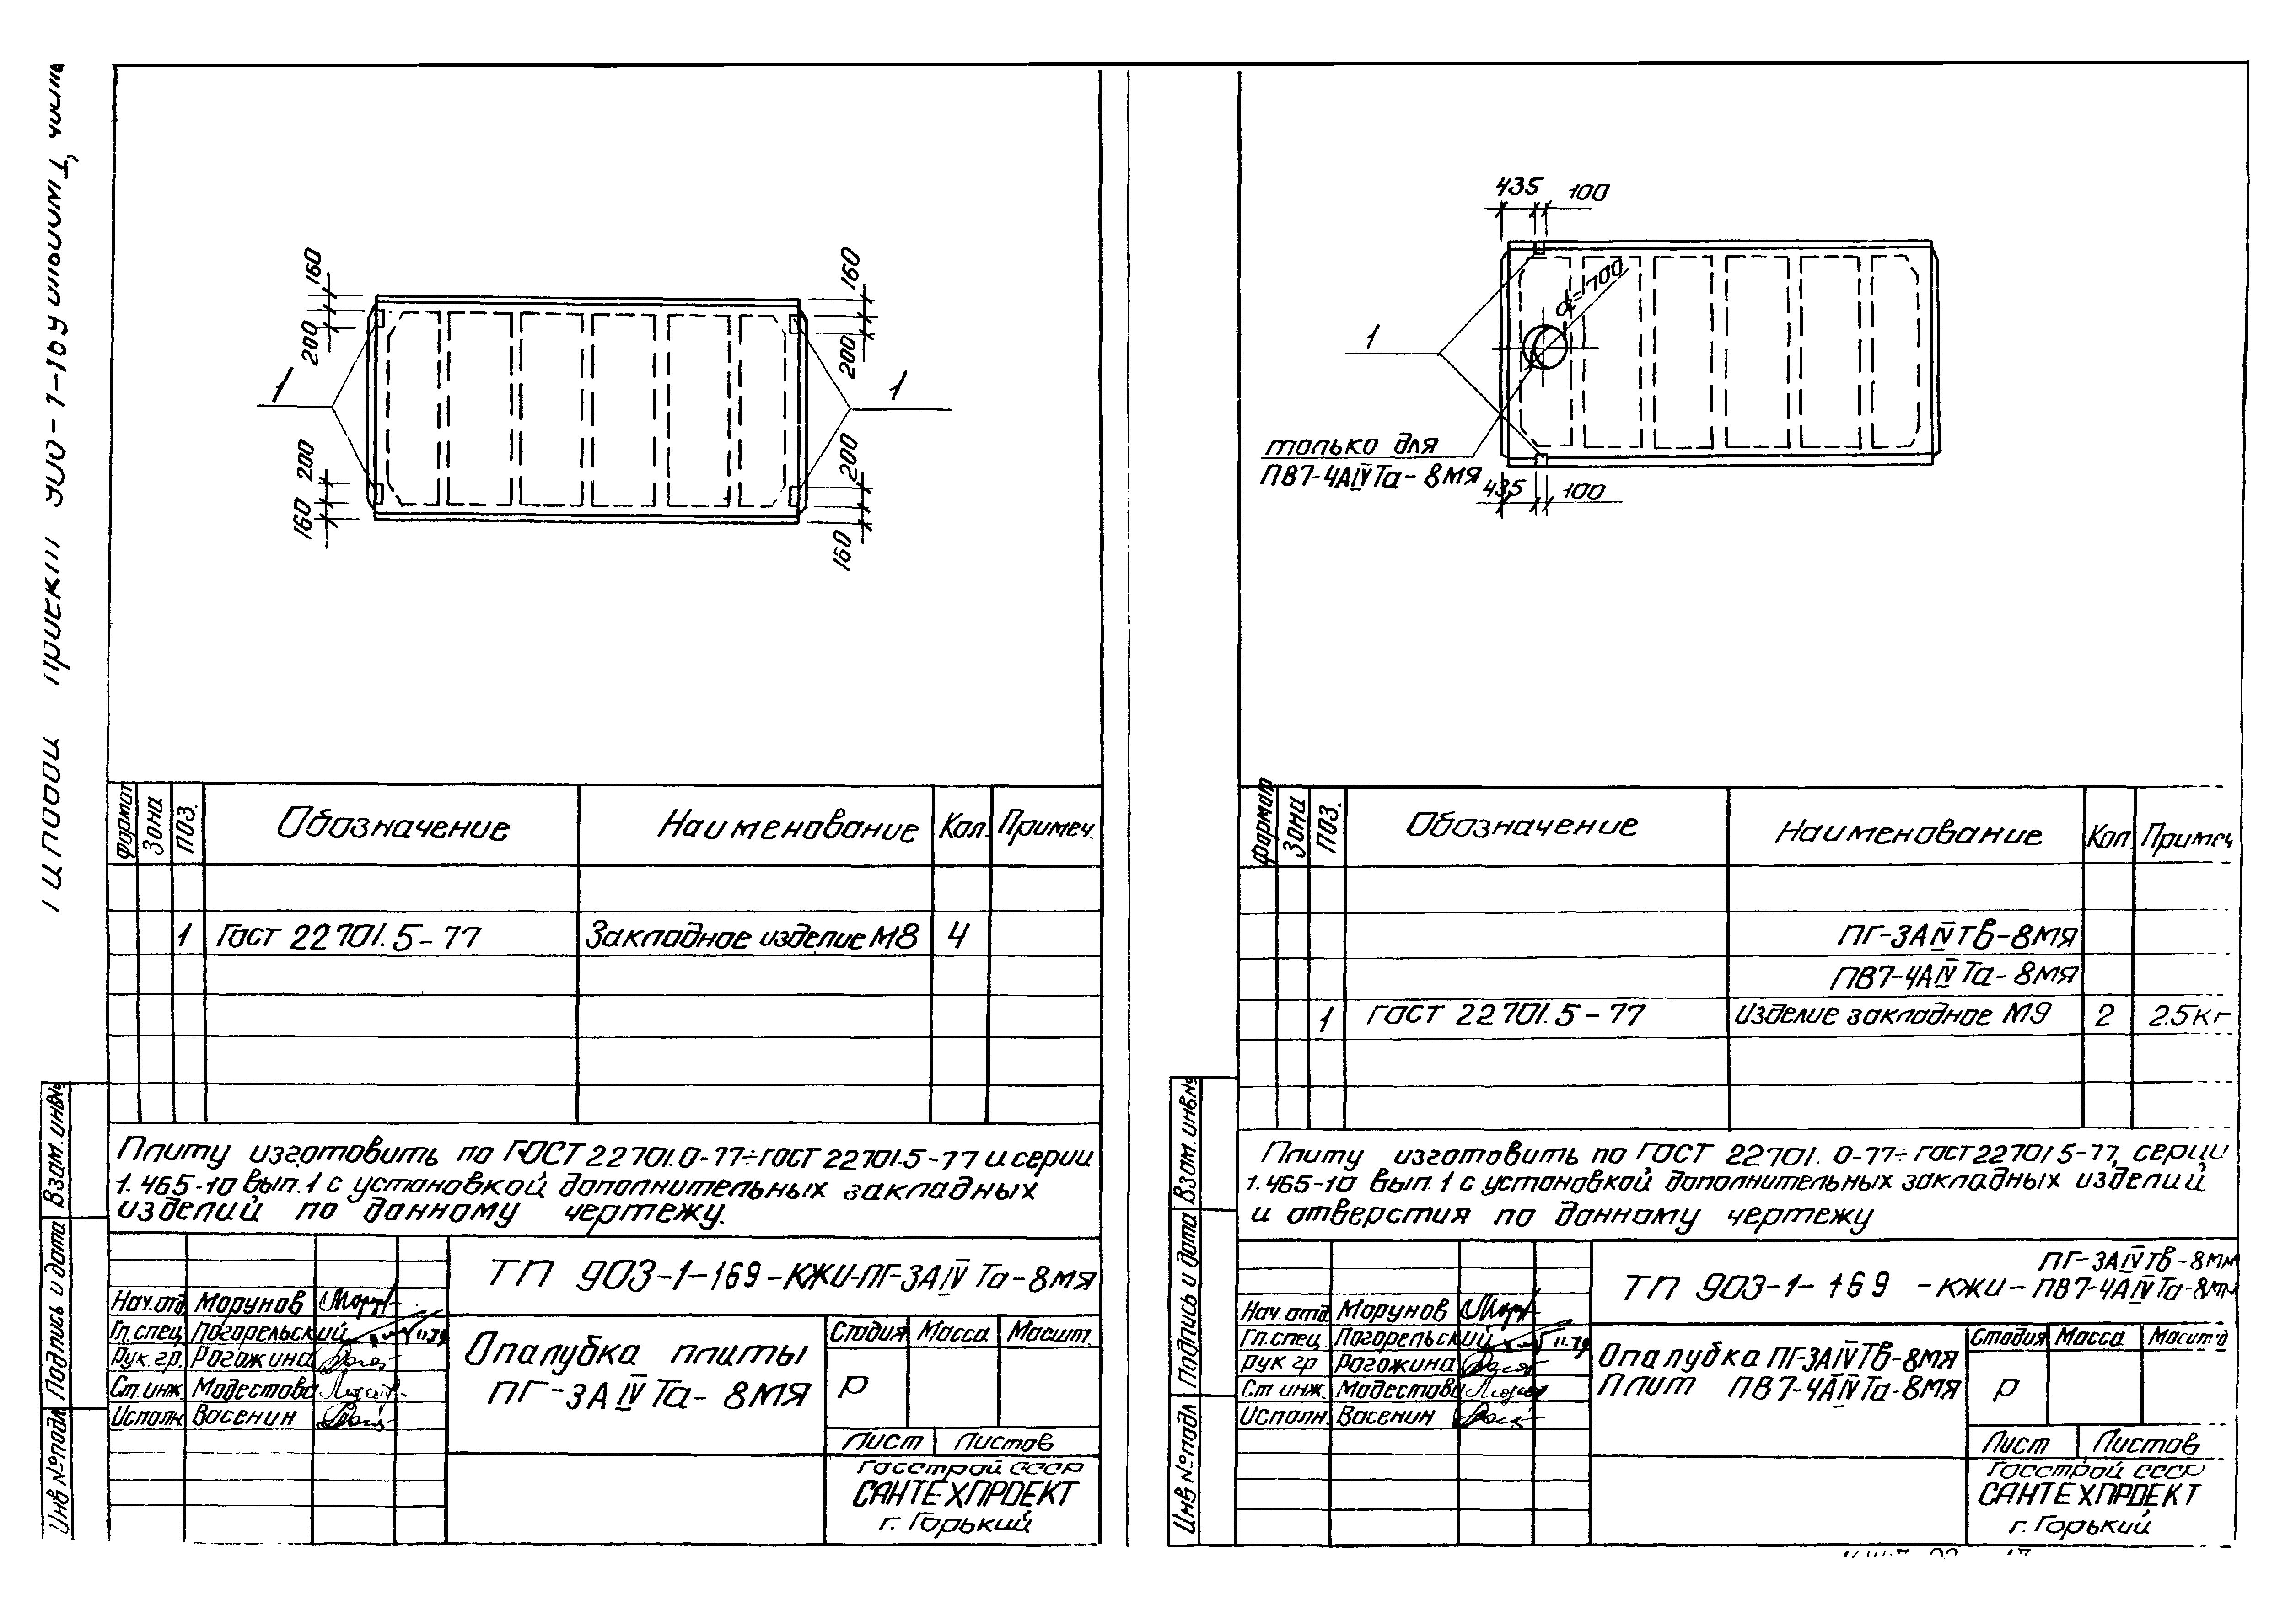 160
200
1
200
160
160
200
1
200
160
Формат
Зона
Поз.
Обозначение
Наименование
Кол.
Примеч.
1
Гост 22701.5-77
Закладное изделие М8
4
Плиту изготовить по ГОСТ 22701.0-77÷гост 22701.5-77 и серии
1.465-10 вып.1 с установкой дополнительных закладных
изделий по данному чертежу.
Взам. инв№
Подпись и дата
Инв №подл
Нач.отд
Морунов
Гл.спец
Погорельский
11.79
Рук.гр.
Рогожина
Ст.инж.
Модестова
Исполн.
Васенин
ТП 903-1-169-КЖИ-ПГ-3АIVТа-8МЯ
Опалубка плиты
ПГ-3АIVТа-8МЯ
Стадия
Масса
Масшт.
Р
Лист
Листов
Госстрой СССР
САНТЕХПРОЕКТ
г. Горький
435
100
d=700
1
только для
ПВ7-4АIVТа-8МЯ
435
100
Формат
Зона
Поз.
Обозначение
Наименование
Кол.
Примеч
ПГ-3АIVТв-8МЯ
ПВ7-4АIVТа-8МЯ
1
гост 22701.5-77
Изделие закладное М9
2
2.5кг
Плиту изготовить по ГОСТ 22701.0-77÷гост 22701 5-77, серии
1.465-10 вып.1 с установкой дополнительных закладных изделий
и отверстия по данному чертежу
Взам. инв.№
Подпись и дата
Инв №подл
Нач. отд
Морунов
Гл.спец.
Погорельский
11.79
рук гр
Рогожина
Ст инж.
Модестова
Исполн.
Васенин
ПГ-3АIVТв-8МЯ
ТП 903-1-169 -КЖИ- ПВ7-4АIVТа-8МЯ
Опалубка ПГ-3АIVТв-8МЯ
плит ПВ7-4АIVТа-8МЯ
Стадия
Масса
Масшт
Р
Лист
Листов
Госстрой СССР
САНТЕХПРОЕКТ
г. Горький